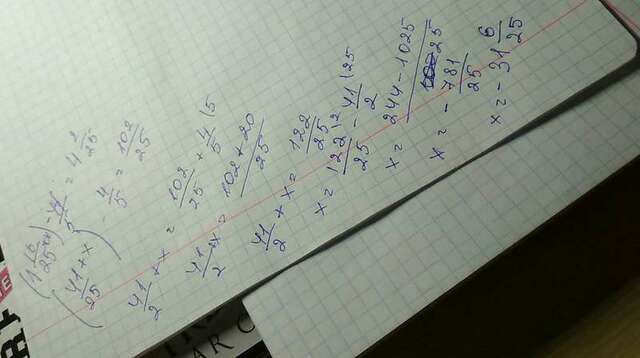 (1 16/25 + x) - 4/5 = 4 2/25
(41/25 + x) - 4/5 = 102/25
41/2 + x = 102/25 + 4/5 |5
41/2 + x = 102 + 20/25
41/2 + x = 122/25
x = 122/25 |2 - 41/2 |25
x = 244 - 1025/25
x = - 781/25
x = - 31 6/25
AR C